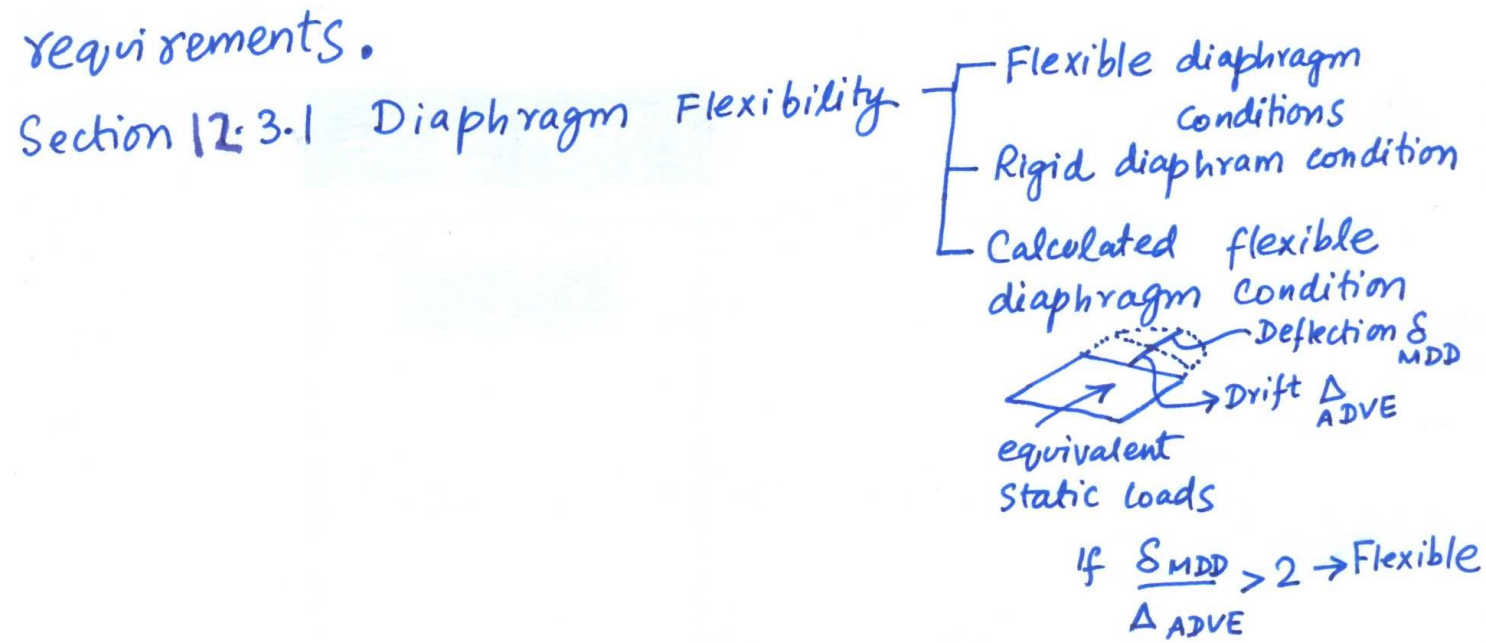 requirements.
Section 12.3.1 Diaphragm Flexibility
Flexible diaphragm
conditions
Rigid diaphram condition
Calculated flexible
diaphragm condition
Deflection δ
MDD
Drift Δ
ADVE
equivalent
static loads
If δMDD > 2 → Flexible
Δ ADVE